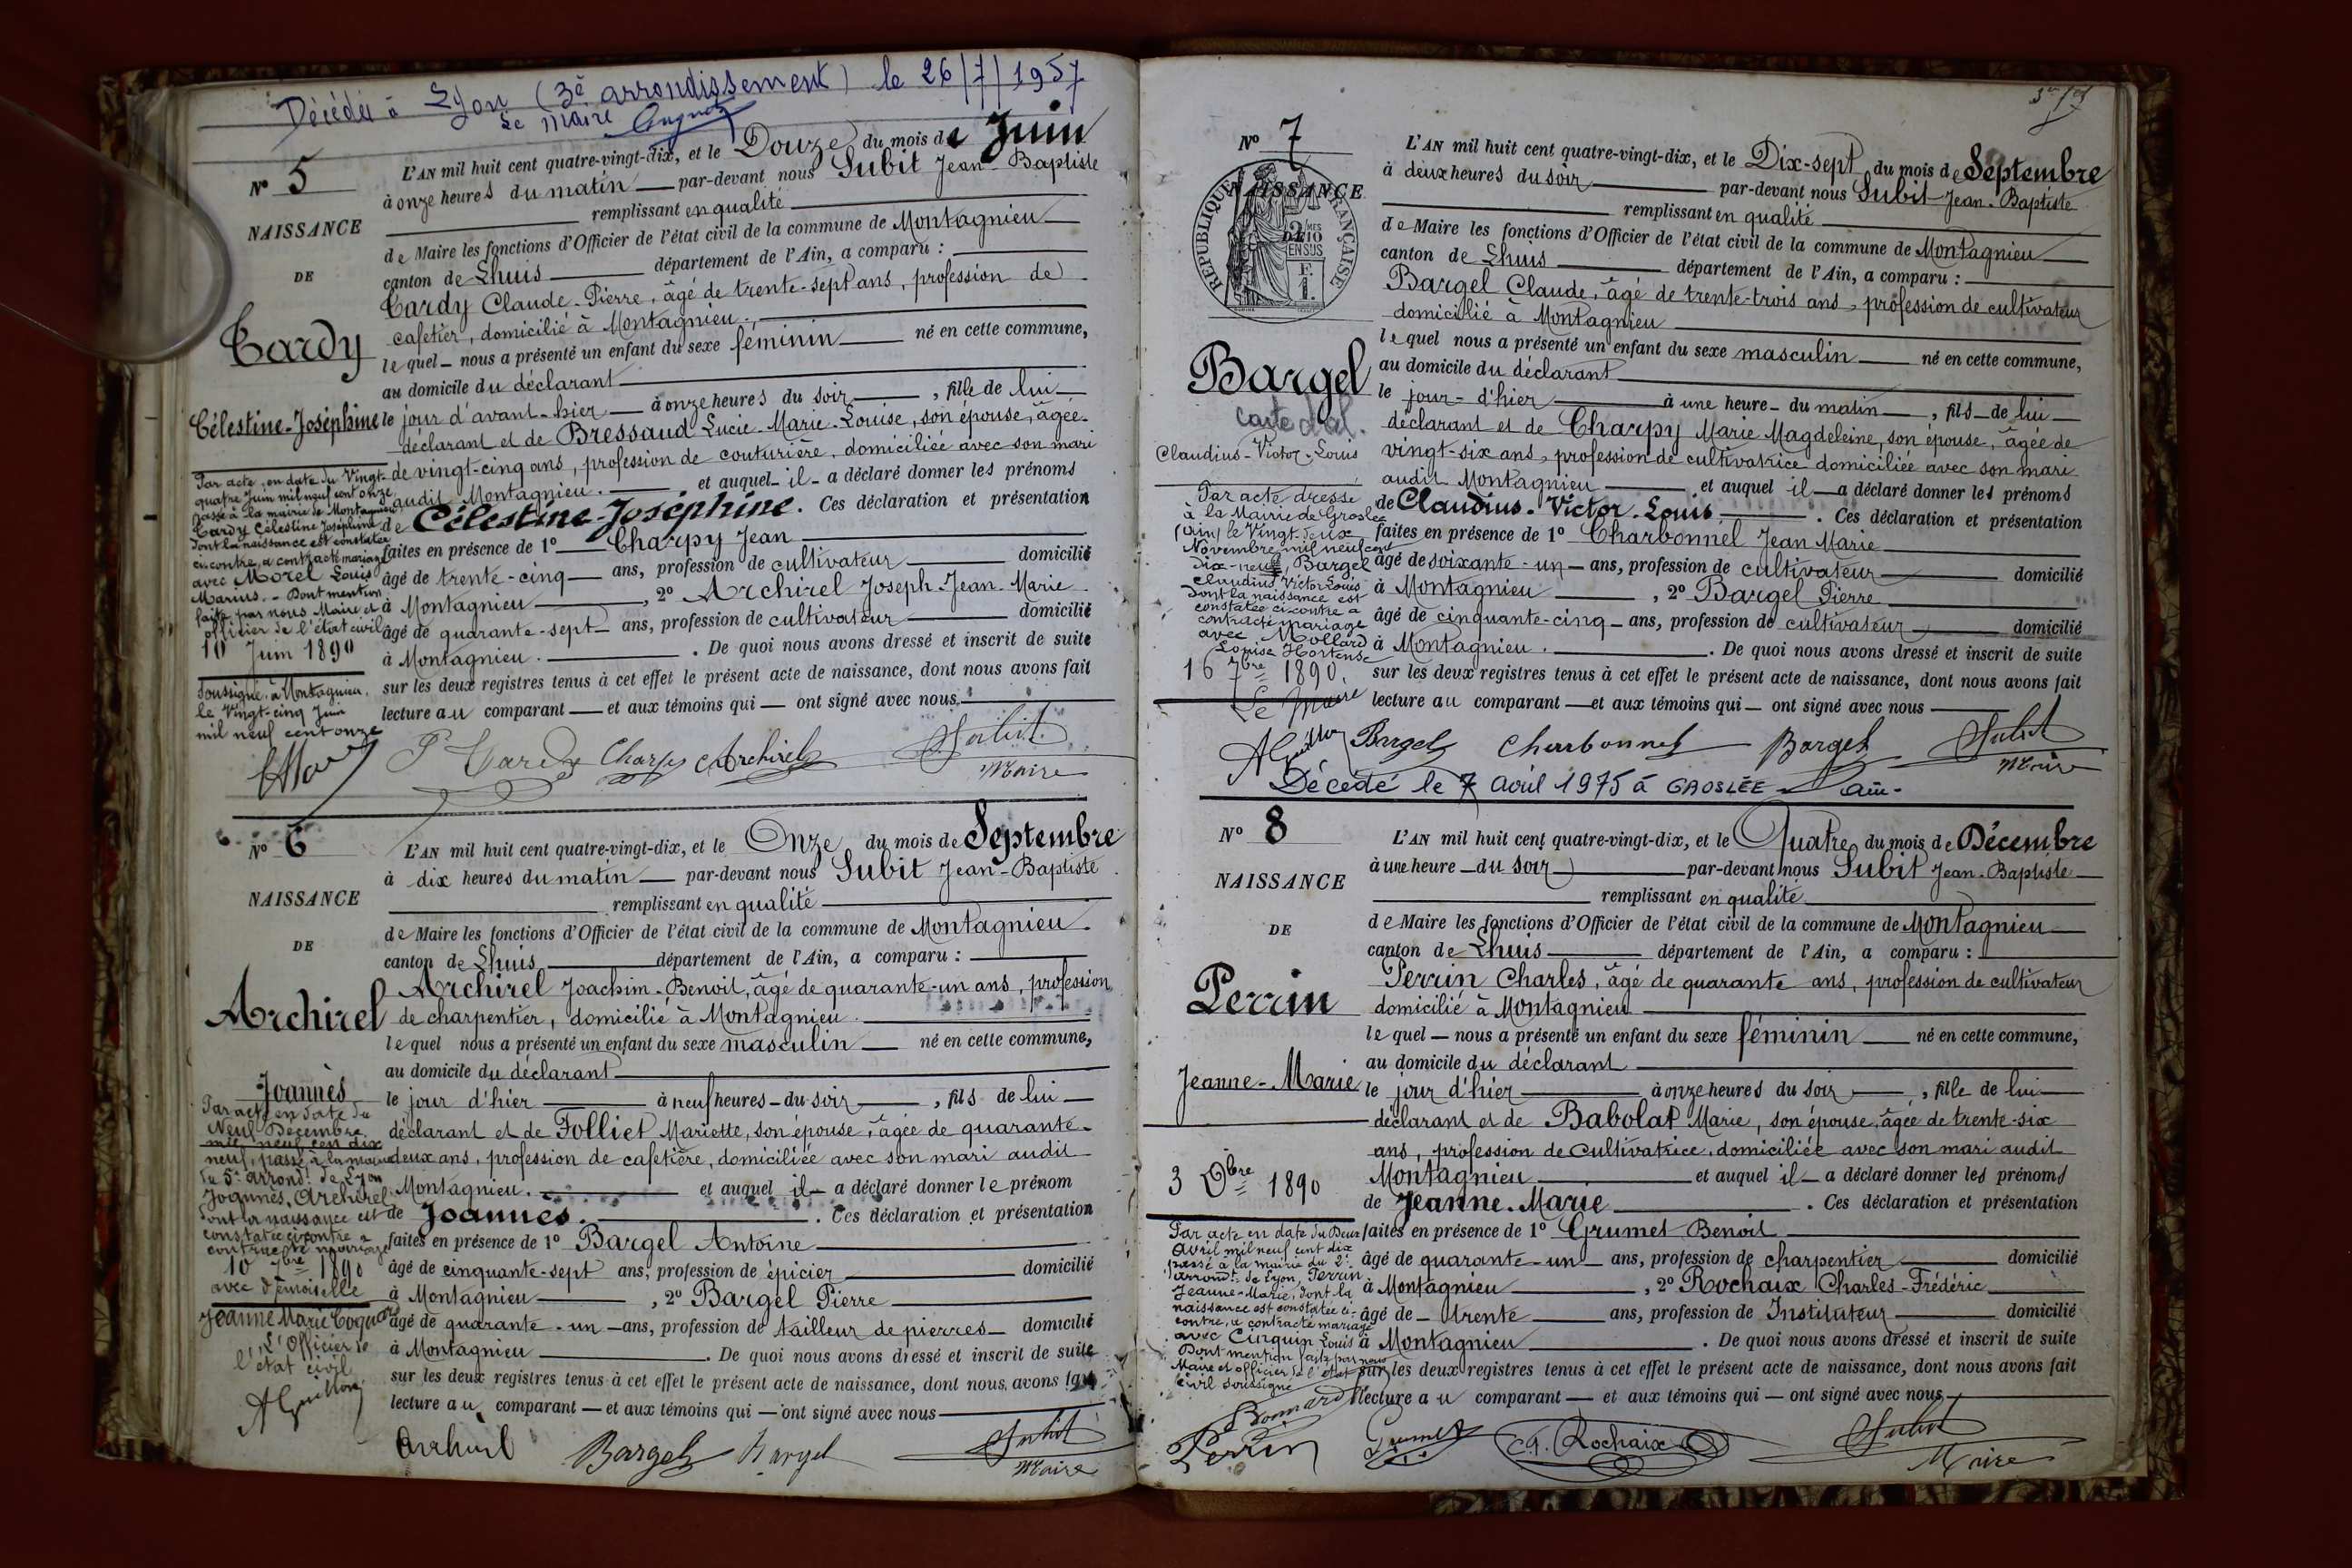 Décédée à Lyon (3è arrondissement) le 26/7/1957
Le Maire
No 5
NAISSANCE
DE
Tardy
Célestine-Joséphine
Par acte, en date du Vingt-
quatre Juin mil neuf cent onze
passé à la mairie de Montagnieu
Tardy Célestine Joséphine
dont la naissance est constatée
ci-contre, a contracté mariage
avec Morel Louis
Marius. - Dont mention
faite par nous Maire et
officier de l'état civil
10 Juin 1890
soussigné, à Montagnieu,
le Vingt-cinq Juin
mil neuf cent onze
L'AN mil huit cent quatre-vingt-dix, et le Douze du mois de Juin
à onze heures du matin par-devant nous Subit Jean-Baptiste
remplissant en qualité
de Maire les fonctions d'Officier de l'état civil de la commune de Montagnieu
canton de Lhuis département de l'Ain, a comparu :
Tardy Claude-Pierre, âgé de trente-sept ans, profession de
cafetier, domicilié à Montagnieu.
lequel nous a présenté un enfant du sexe féminin né en cette commune,
au domicile du déclarant
le jour d'avant-hier à onze heures du soir, fille de lui
déclarant et de Bressaud Lucie-Marie-Louise, son épouse, âgée
de vingt-cinq ans, profession de couturière, domiciliée avec son mari
audit Montagnieu. et auquel il a déclaré donner les prénoms
de Célestine-Joséphine. Ces déclaration et présentation
faites en présence de 1o Charpy Jean
âgé de trente-cinq ans, profession de cultivateur domicilié
à Montagnieu, 2o Archirel Joseph-Jean-Marie
âgé de quarante-sept ans, profession de cultivateur domicilié
à Montagnieu. De quoi nous avons dressé et inscrit de suite
sur les deux registres tenus à cet effet le présent acte de naissance, dont nous avons fait
lecture au comparant et aux témoins qui ont signé avec nous.
P Tardy Charpy Archirel Subit
Maire
No 6
NAISSANCE
DE
Archirel
Joannès
Par acte en date du
Neuf Décembre
mil neuf cen dix
neuf, passé à la mairie
du 5e arrondt de Lyon
Joannès Archirel
dont la naissance est
constatée ci-contre a
contracté mariage
10 7bre 1890
avec demoiselle
Jeanne Marie Coquard
L'Officier de
l'état civil
AGuillon
L'AN mil huit cent quatre-vingt-dix, et le Onze du mois de Septembre
à dix heures du matin par-devant nous Subit Jean-Baptiste
remplissant en qualité
de Maire les fonctions d'Officier de l'état civil de la commune de Montagnieu
canton de Lhuis département de l'Ain, a comparu :
Archirel Joachim-Benoit, âgé de quarante-un ans, profession
de charpentier, domicilié à Montagnieu.
lequel nous a présenté un enfant du sexe masculin né en cette commune,
au domicile du déclarant
le jour d'hier à neuf heures du soir, fils de lui
déclarant et de Folliet Mariette, son épouse, âgée de quarante-
deux ans, profession de cafetière, domiciliée avec son mari audit
Montagnieu. et auquel il a déclaré donner le prénom
de Joannès. Ces déclaration et présentation
faites en présence de 1o Bargel Antoine
âgé de cinquante-sept ans, profession de épicier domicilié
à Montagnieu, 2o Bargel Pierre
âgé de quarante-un ans, profession de tailleur de pierres domicilié
à Montagnieu. De quoi nous avons dressé et inscrit de suite
sur les deux registres tenus à cet effet le présent acte de naissance, dont nous avons fait
lecture au comparant et aux témoins qui ont signé avec nous
Archirel Bargel Bargel Subit
Maire
No 7
NAISSANCE
REPUBLIQUE FRANÇAISE
2/10MES
EN SUS
Bargel
Claudius-Victor-Louis
Par acte dressé
à la Mairie de Groslée
(Ain) le Vingt-deux
Novembre mil neuf cent
dix-neuf, Bargel
Claudius Victor Louis
dont la naissance est
constatée ci-contre a
contracté mariage
avec Mollard
Louise Hortense
16 7bre 1890.
Le Maire
AGuillon
L'AN mil huit cent quatre-vingt-dix, et le Dix-sept du mois de Septembre
à deux heures du soir par-devant nous Subit Jean-Baptiste
remplissant en qualité
de Maire les fonctions d'Officier de l'état civil de la commune de Montagnieu
canton de Lhuis département de l'Ain, a comparu :
Bargel Claude, âgé de trente-trois ans, profession de cultivateur
domicilié à Montagnieu
lequel nous a présenté un enfant du sexe masculin né en cette commune,
au domicile du déclarant
le jour d'hier à une heure du matin, fils de lui
déclarant et de Charpy Marie Magdeleine, son épouse, âgée de
vingt-six ans, profession de cultivatrice domiciliée avec son mari
audit Montagnieu et auquel il a déclaré donner les prénoms
de Claudius-Victor-Louis. Ces déclaration et présentation
faites en présence de 1o Charbonnel Jean Marie
âgé de soixante-un ans, profession de cultivateur domicilié
à Montagnieu, 2o Bargel Pierre
âgé de cinquante-cinq ans, profession de cultivateur domicilié
à Montagnieu. De quoi nous avons dressé et inscrit de suite
sur les deux registres tenus à cet effet le présent acte de naissance, dont nous avons fait
lecture au comparant et aux témoins qui ont signé avec nous
Bargel Charbonnel Bargel Subit
Maire
Décédé le 7 avril 1975 à GROSLÉE - Ain -
No 8
NAISSANCE
DE
Perrin
Jeanne-Marie
3 Xbre 1890
Par acte en date du Deux
Avril mil neuf cent dix
passé à la mairie du 2e
arrondt de Lyon, Perrin
Jeanne-Marie, dont la
naissance est constatée ci-
contre, a contracté mariage
avec Cinquin Louis
Dont mention faite par nous
Maire et officier de l'état
civil soussigné
Bonnard
L'AN mil huit cent quatre-vingt-dix, et le Quatre du mois de Décembre
à une heure du soir par-devant nous Subit Jean-Baptiste
remplissant en qualité
de Maire les fonctions d'Officier de l'état civil de la commune de Montagnieu
canton de Lhuis département de l'Ain, a comparu :
Perrin Charles, âgé de quarante ans, profession de cultivateur
domicilié à Montagnieu
lequel nous a présenté un enfant du sexe féminin né en cette commune,
au domicile du déclarant
le jour d'hier à onze heures du soir, fille de lui
déclarant et de Babolat Marie, son épouse, âgée de trente-six
ans, profession de cultivatrice, domiciliée avec son mari audit
Montagnieu et auquel il a déclaré donner les prénoms
de Jeanne-Marie. Ces déclaration et présentation
faites en présence de 1o Grumet Benoit
âgé de quarante-un ans, profession de charpentier domicilié
à Montagnieu, 2o Rochaix Charles-Frédéric
âgé de trente ans, profession de Instituteur domicilié
à Montagnieu. De quoi nous avons dressé et inscrit de suite
sur les deux registres tenus à cet effet le présent acte de naissance, dont nous avons fait
lecture au comparant et aux témoins qui ont signé avec nous
Perrin Grumet Rochaix Subit
Maire